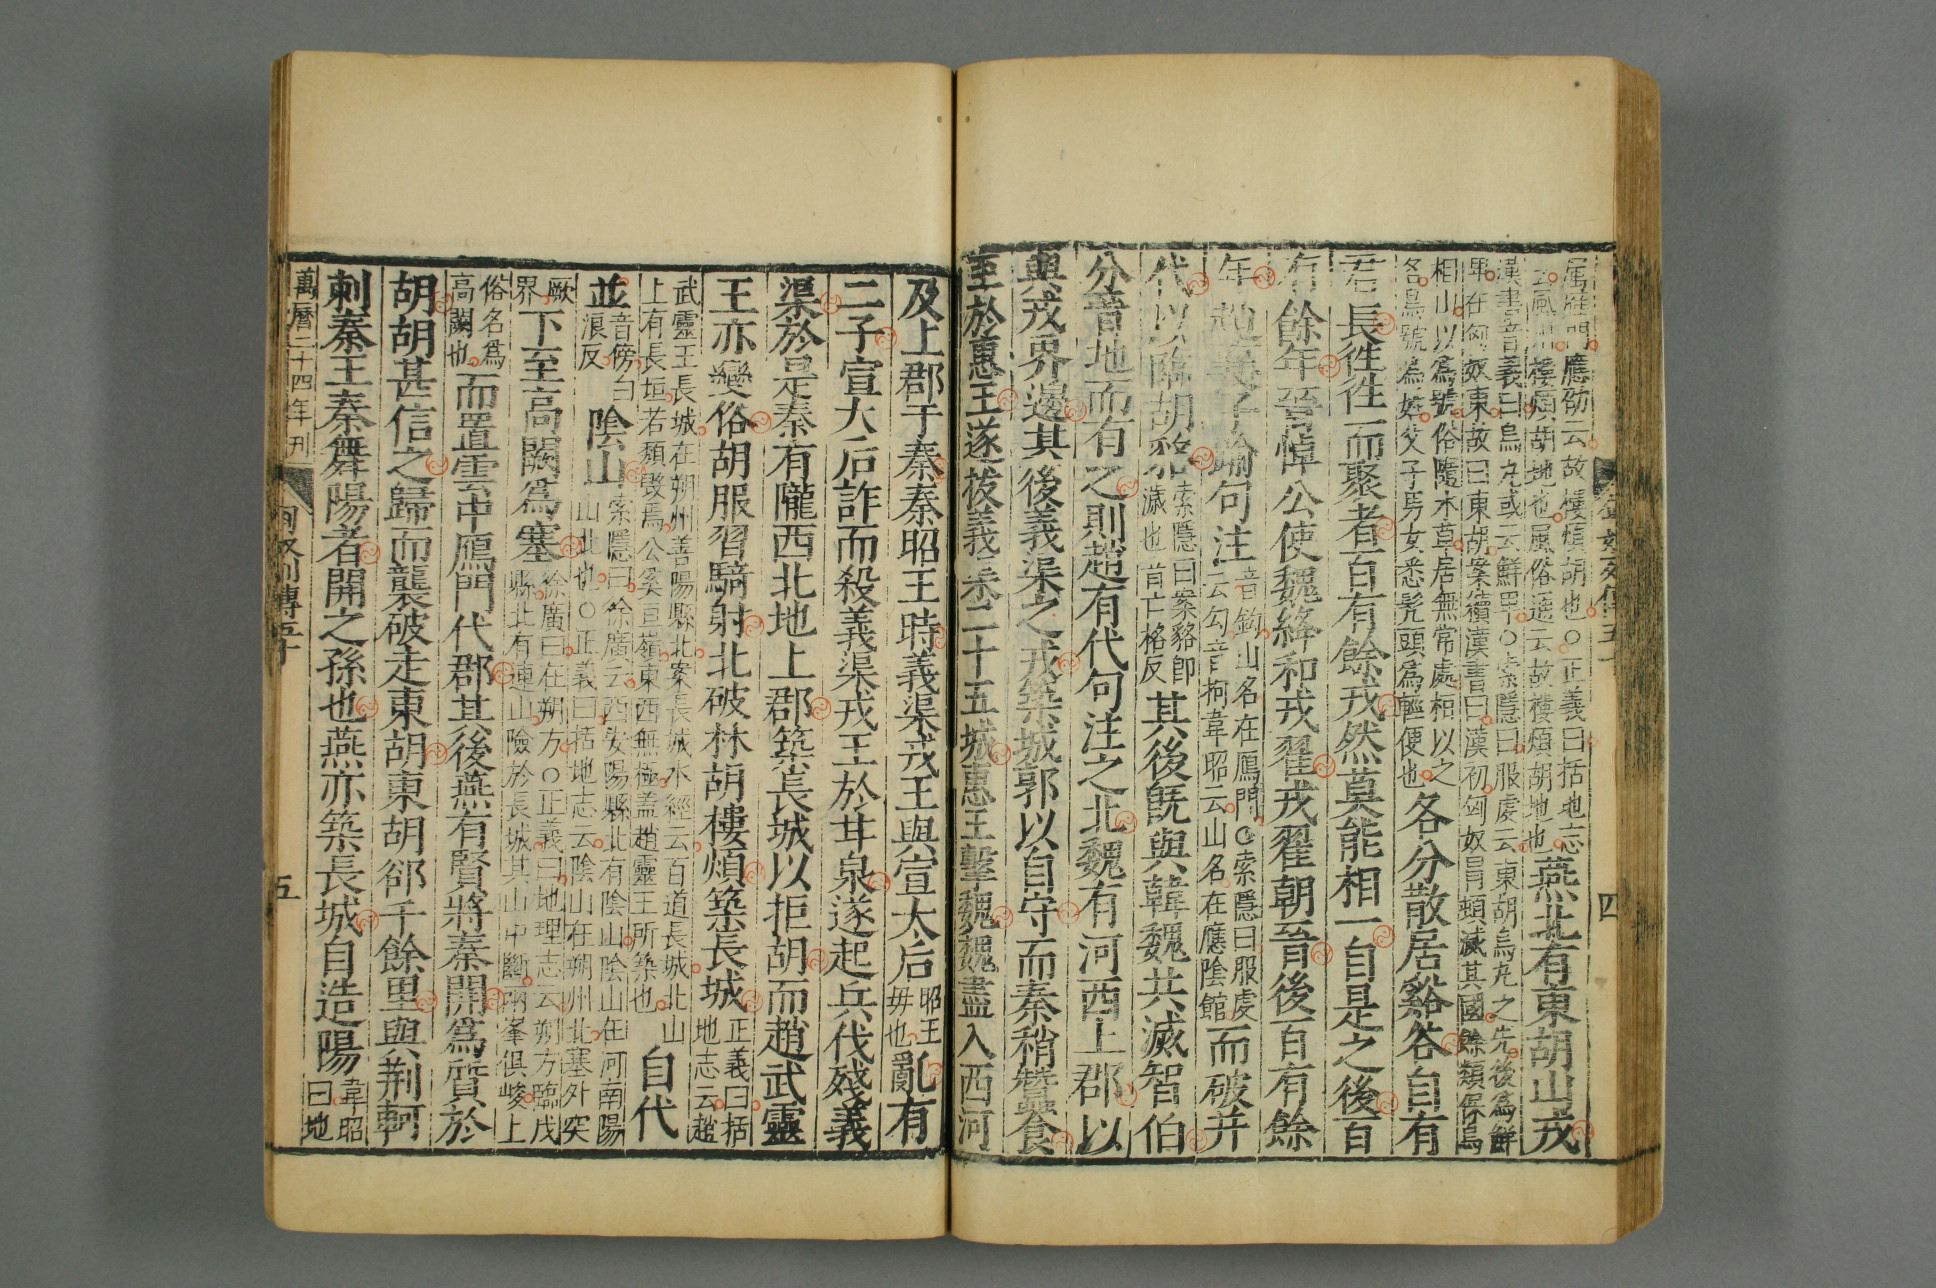 屬鴈門應劭云故樓煩胡也○正義曰括地志
云嵐州樓煩胡地也風俗通云故樓煩胡地也燕北有東胡山戎
漢書音義曰烏丸或云鮮卑○索隱曰服虔云東胡烏丸之先後為鮮
卑在匈奴東故曰東胡案續漢書曰漢初匈奴冒頓滅其國餘類保烏
桓山以為號俗隨水草居無常處桓以之
名烏號為姓父子男女悉髡頭為輕便也各分散居谿谷自有
君長徃徃而聚者百有餘戎然莫能相一自是之後百
有餘年晉悼公使魏絳和戎翟戎翟朝晉後百有餘
年趙襄子踰句注音鉤山名在鴈門○索隱曰服虔
云勾音拘韋昭云山名在應陰館而破并
代以臨胡貉索隱曰案貉卽
濊也音亡格反其後旣與韓魏共滅智伯
分晉地而有之則趙有代句注之北魏有河西上郡以
與戎界邊其後義渠之戎築城郭以自守而秦稍蠶食
至於惠王遂拔義渠二十五城惠王擊魏魏盡入西河
及上郡于秦秦昭王時義渠戎王與宣太后昭王
母也亂有
二子宣太后詐而殺義渠戎王於甘泉遂起兵伐殘義
渠於是秦有隴西北地上郡築長城以拒胡而趙武靈
王亦變俗胡服習騎射北破林胡樓煩築長城正義曰括
地志云趙
武靈王長城在朔州善陽縣北案長城水經云百道長城北山
上有長垣若頹毀焉㳂溪亘嶺東西無極蓋趙靈王所築也自代
並音傍白
浪反陰山索隱曰徐廣云西安陽縣北有陰山陰山在河南陽
山北也○正義曰括地志云陰山在朔州北塞外突
厥
界下至高闕為塞徐廣曰在朔方○正義曰地理志云朔方臨戎
縣北有連山險於長城其山中斷兩峯俱峻土
俗名為
高闕也而置雲中鴈門代郡其後燕有賢將秦開為質於
胡胡甚信之歸而襲破走東胡東胡郤千餘里與荆軻
刺秦王秦舞陽者開之孫也燕亦築長城自造陽韋昭
曰地
萬曆二十四年刊
匈奴列傳五十
五
四